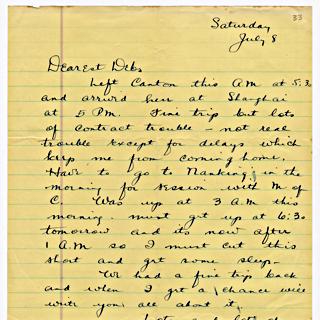 33
Saturday
July 8
Dearest Debs
Left Canton this A.M at 5:30
and arrivd here at Shanghai
at 5 P.M. Fine trip but lots
of contract trouble - not real
trouble except for delays which
keep me from coming home.
Have to go to Nanking in the
morning for session with M of
C. Was up at 3 A.M this
morning must get up at 6:30
tomorrow and its now after
1 A.M so I must cut this
short and get some sleep-
We had a fine trip back
and when I get a chance will
write you all about it.
Lots and lots of